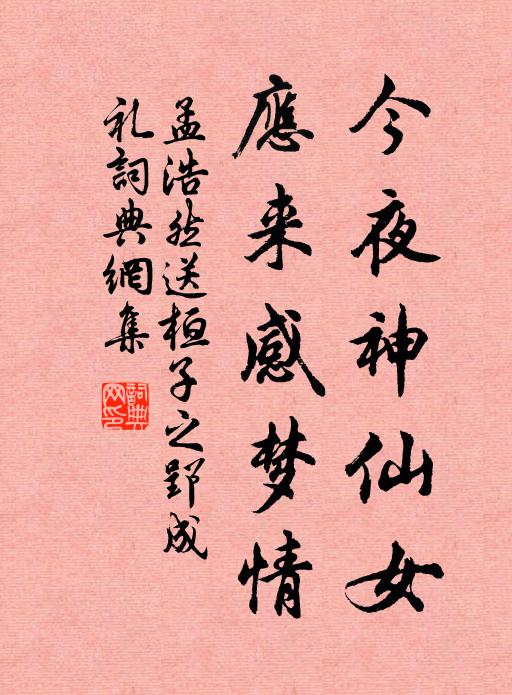 今夜神仙女
應来感梦情
孟浩然送桓子之郢成
礼詞典網集
詞典網印